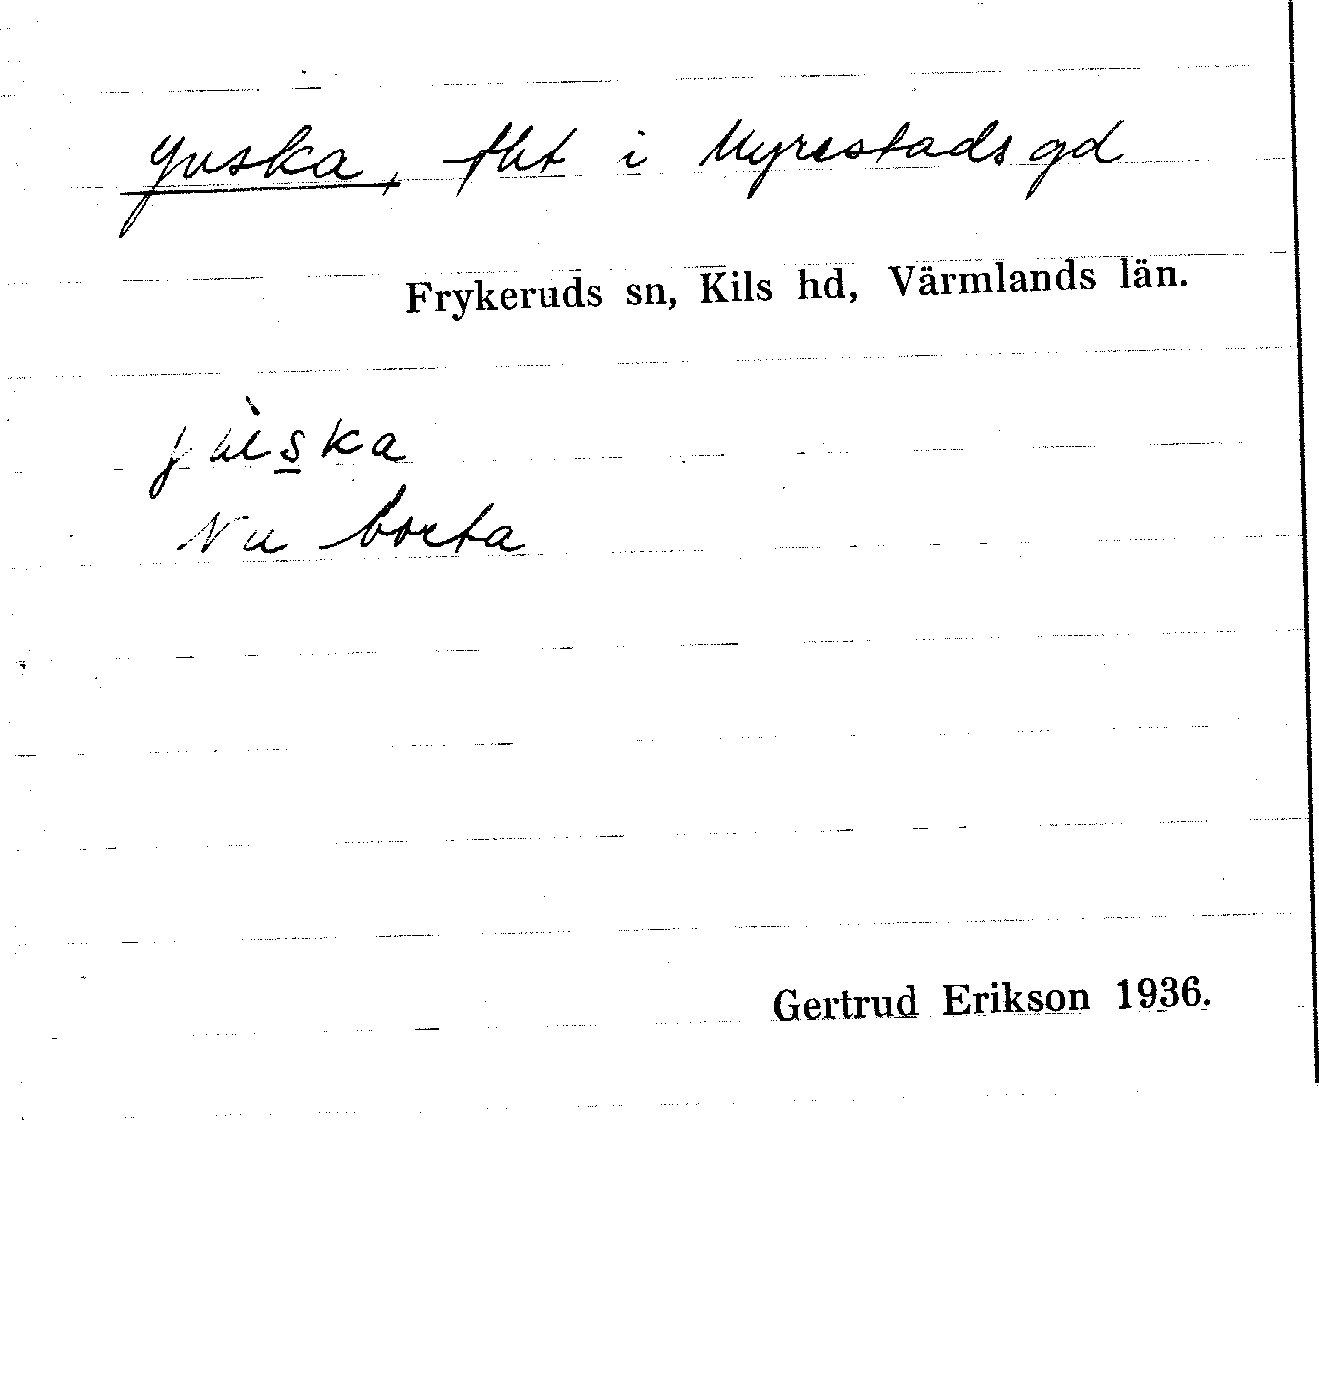 Juska, fht i Myrestads gd
Frykeruds sn, Kils hd, Värmlands län.
Nu borta
Gertrud Erikson 1936.